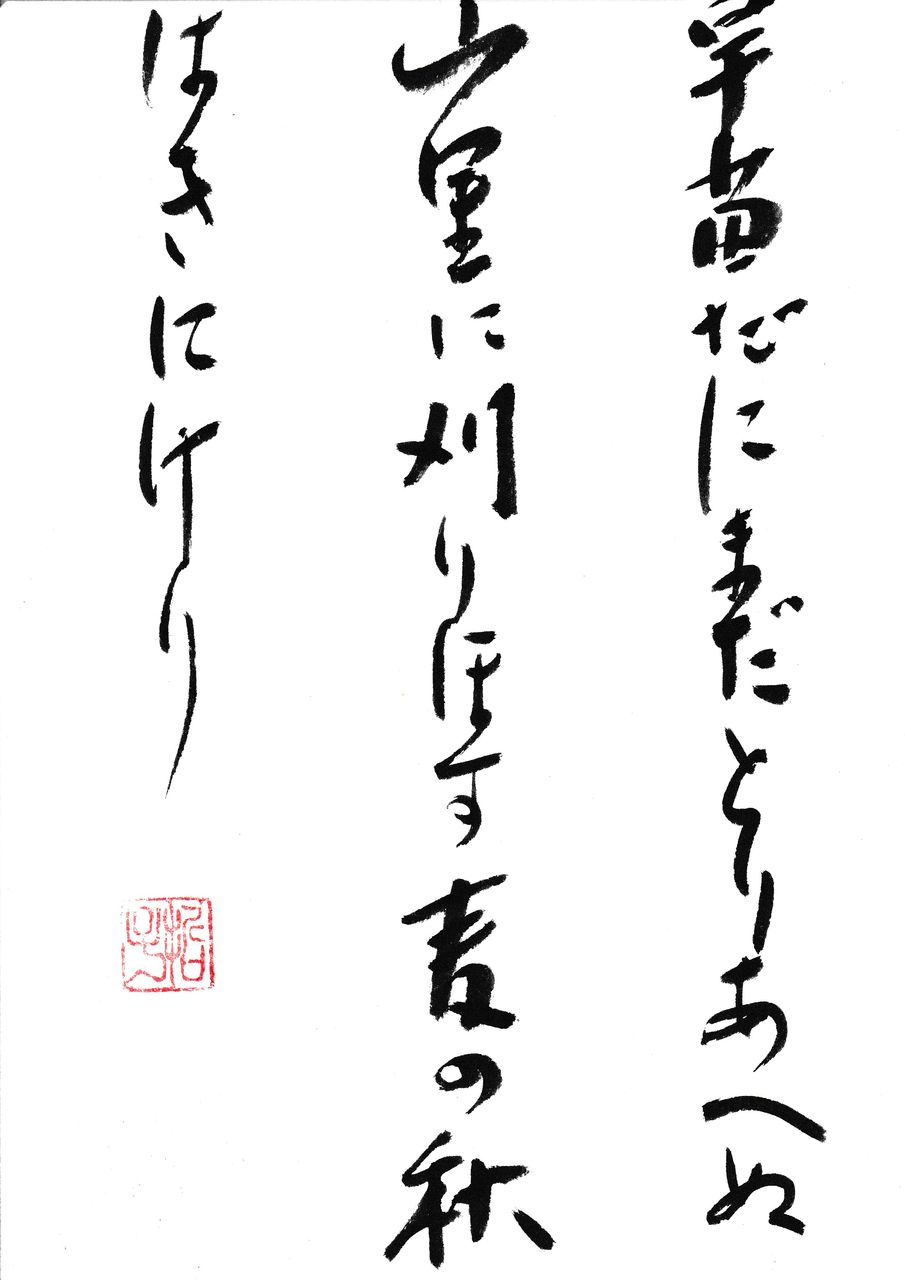 早苗だにまだとりあへぬ
山里に刈りほす麦の秋
はきにけり